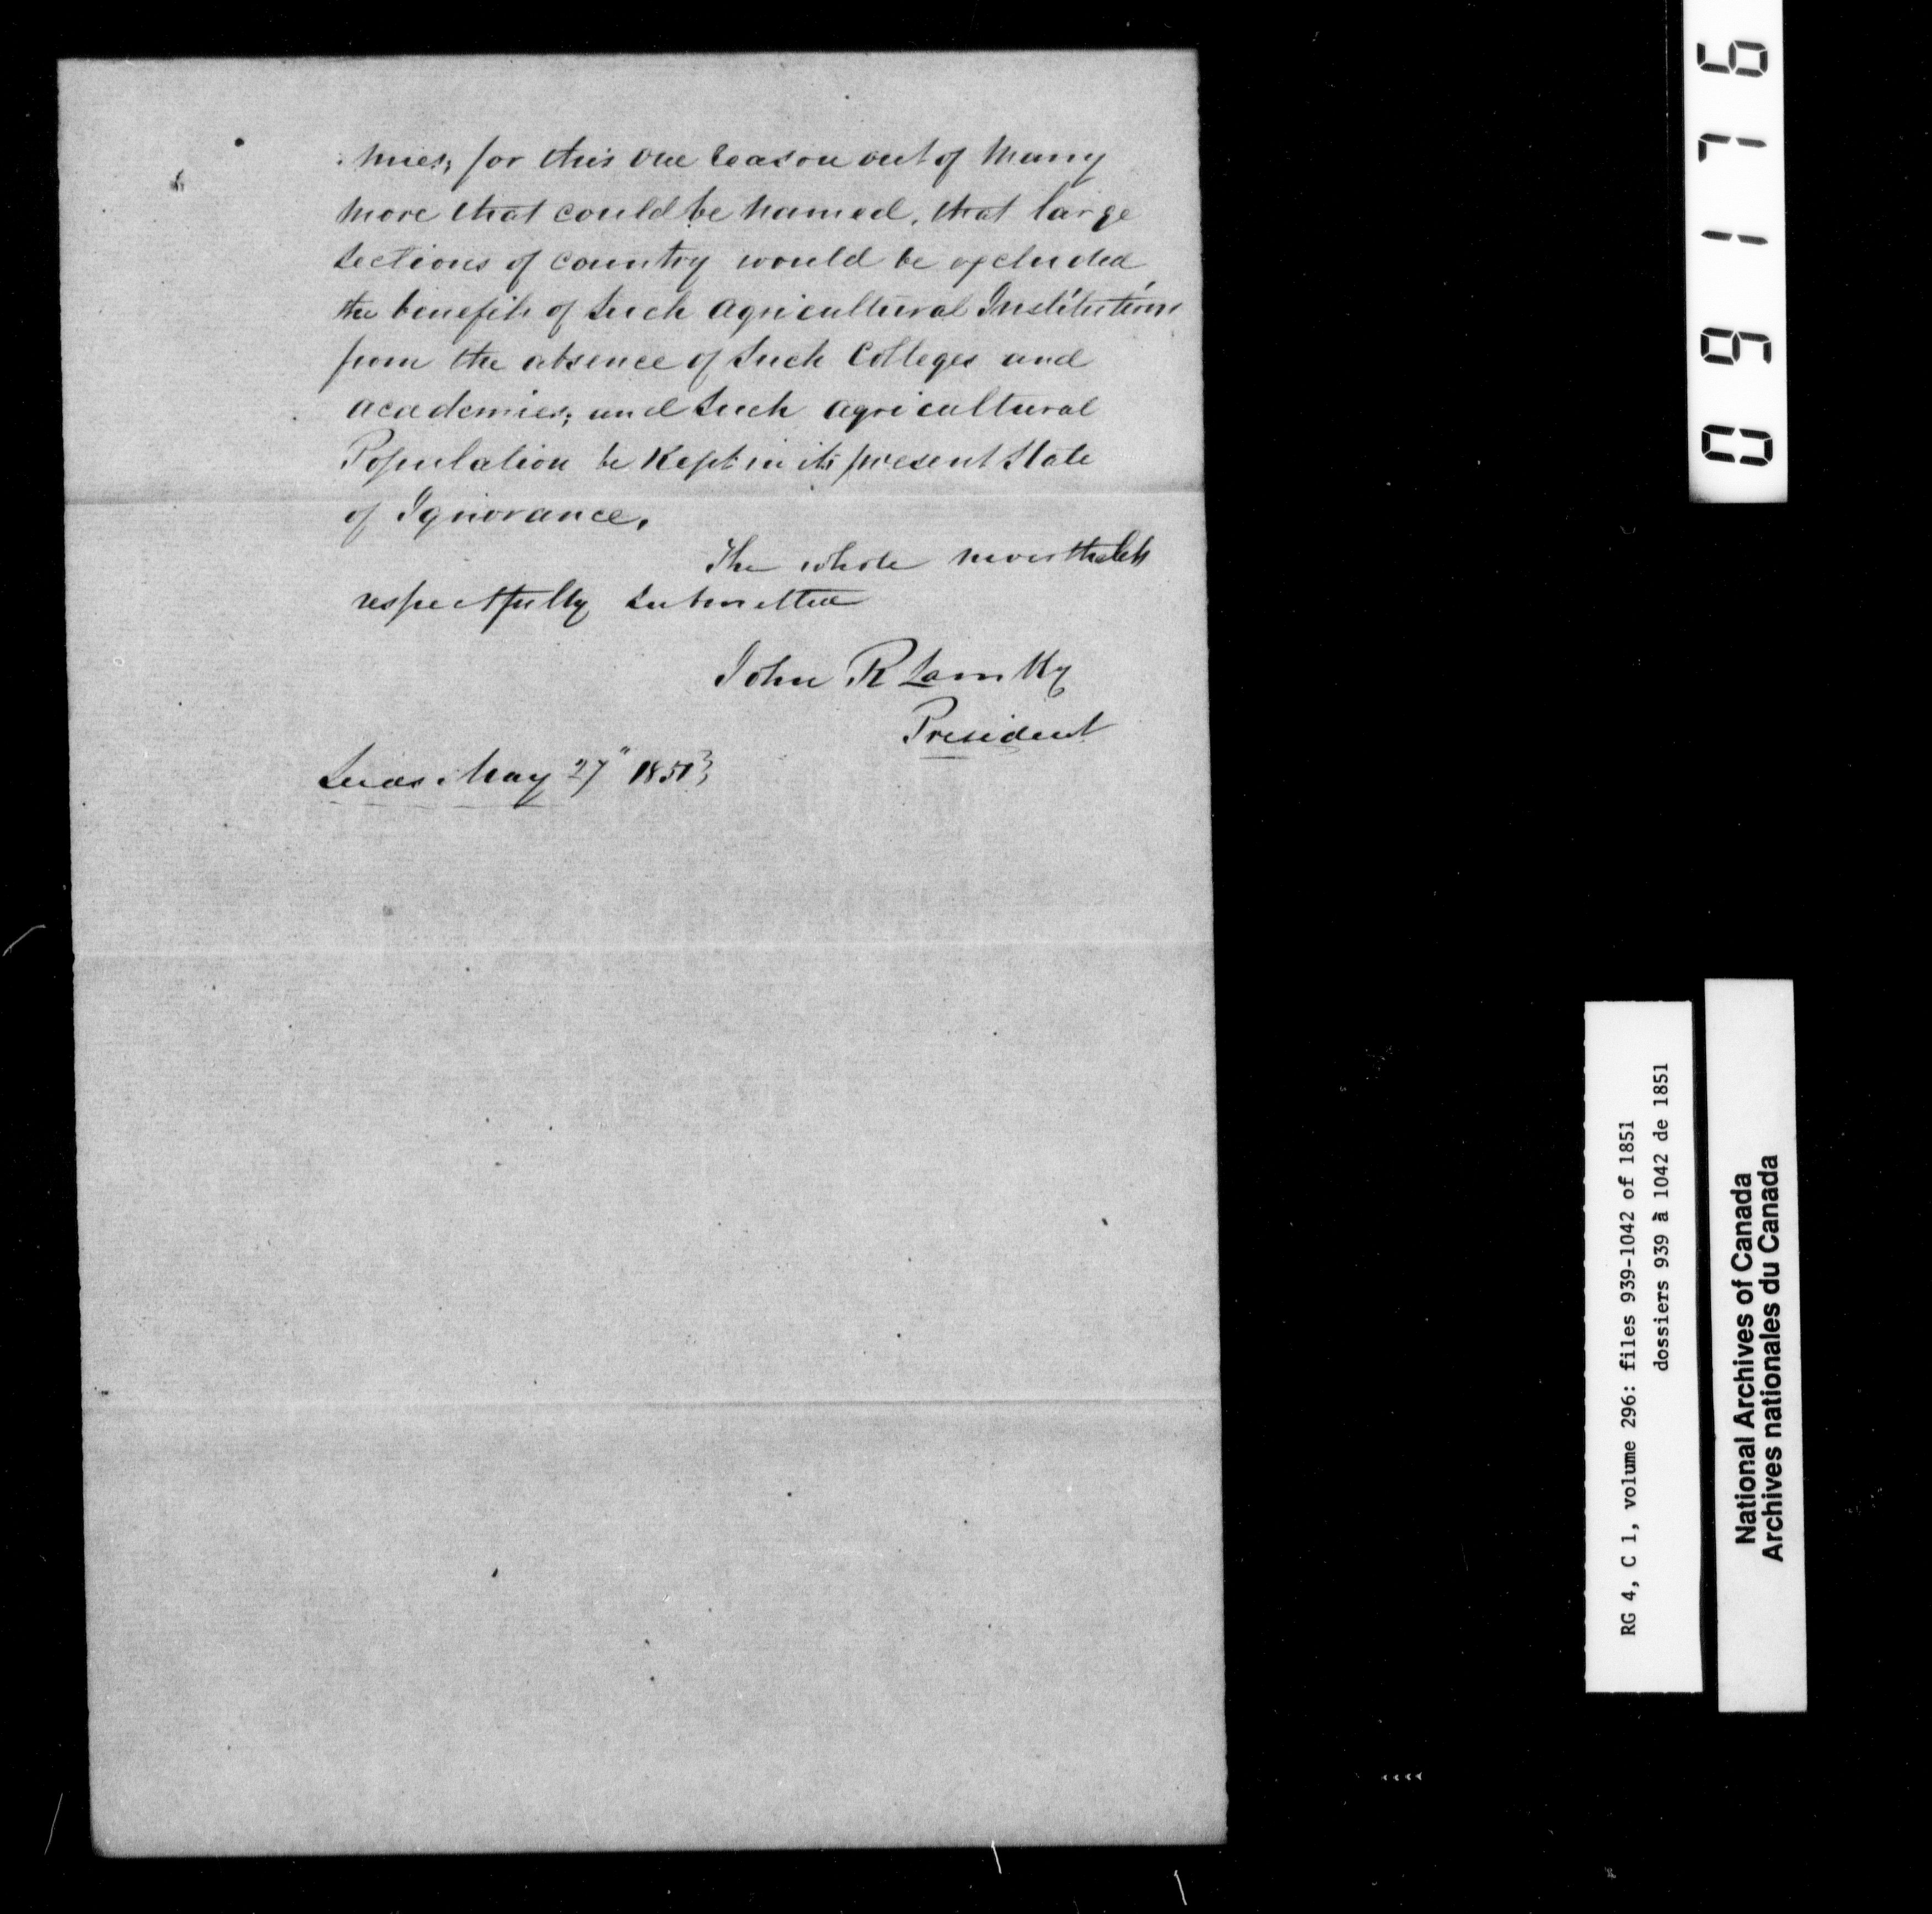 mies; for this one reason out of many
more that could be named, that large
sections of country would be excluded
the benefits of such agricultural Institutions
from the absence of such Colleges and
academies; and such agricultural
Population be kept in its present State
of Ignorance.
The whole nevertheless
respectfully submitted
John R
President
May 27" 1851
091776
RG 4, C 1, volume 296: files 939-1042 of 1851
dossiers 939 à 1042 de 1851
National Archives of Canada
Archives nationales du Canada